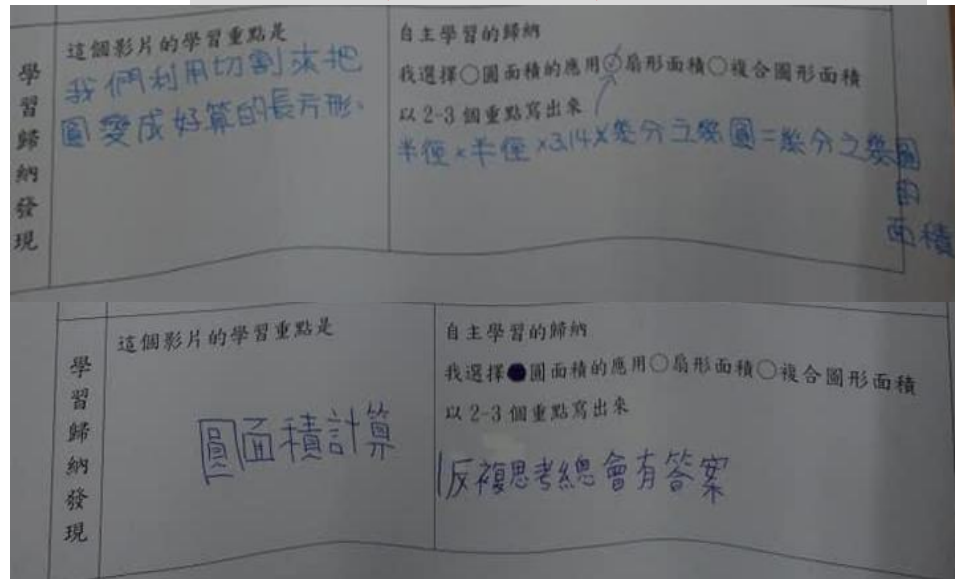 學習歸納發現
這個影片的學習重點是
我們利用切割來把
圓變成好算的長方形。
自主學習的歸納
我選擇○圓面積的應用☑扇形面積○複合圖形面積
以 2-3 個重點寫出來
半徑×半徑×3.14×幾分之幾圓=幾分之幾圓
的
面積
學習歸納發現
這個影片的學習重點是
圓面積計算
自主學習的歸納
我選擇●圓面積的應用○扇形面積○複合圖形面積
以 2-3 個重點寫出來
反複思考總會有答案